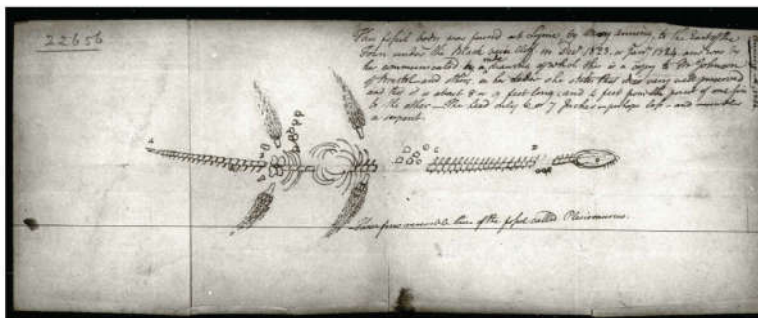 22656
This fossil body was found at Lyme, by Mary Anning, to the East of the
Town under the Black Cliff in Decr 1823, or Jany 1824, and was by
her communicated by a drawing of which this is a copy to Mr Johnson
of Bristol and others, in her letter she states that it is very well preserved
and that it is about 8 or 9 feet long, and 4 feet from the point of one fin
to the other — The head only 6 or 7 Inches in length and
a serpent.
These fins resemble those of the fossil called Plesiosaurus.